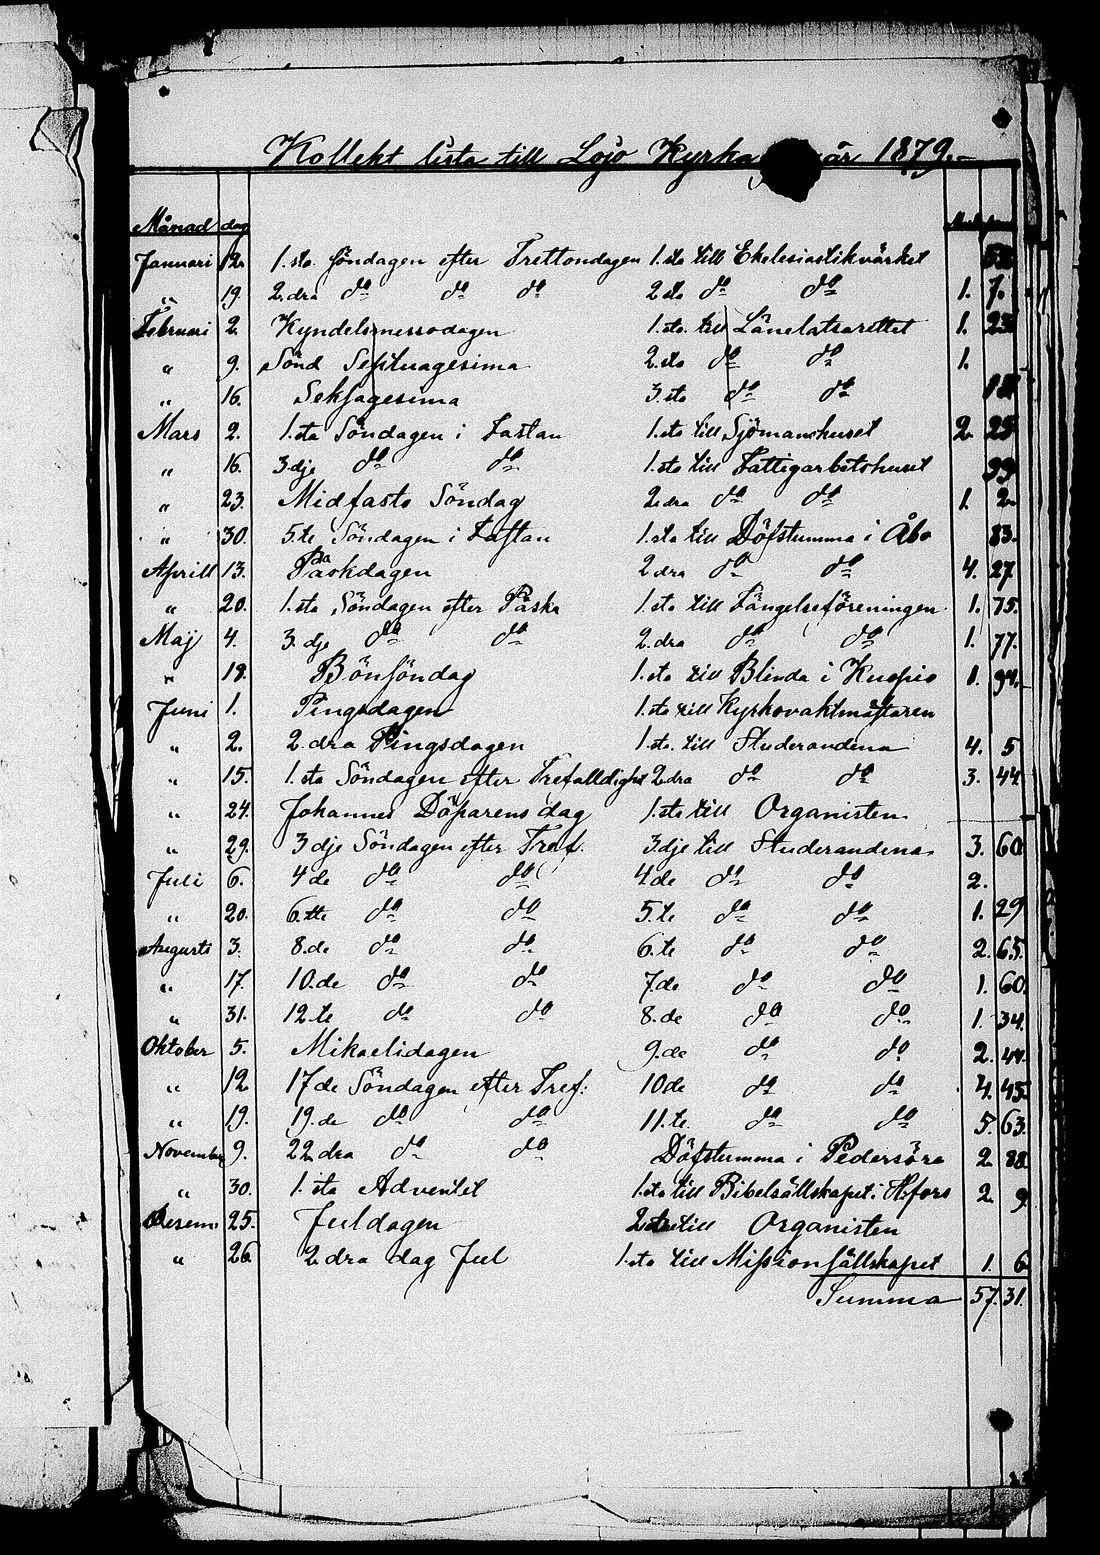 Kollekt lista till Lojo Kyrka år 1879.
Månad dag
Januari 12. 1.sta Söndagen efter Trettondagen 1.sta till Eklesiastikvärket 52
" 19. 2.dra do do do 2.dra do do 1. 7.
Februari 2. Kyndelsmessodagen 1.sta till Länelatsarettet 1. 23
" 9. Sönd Septuagesima 2.sta do do 1.
" 16. Seksagesima 3.sta do do
Mars 2. 1.sta Söndagen i Fastan 1.sta till Sjömanshuset 2. 25
" 16. 3dje do do 1.sta till Fattigarbetshuset 99
" 23. Midfasto Söndag 2.dra do do 1. 2.
" 30. 5.te Söndagen i Fastan 1.sta till Döfstumma i Åbo 83.
Aprill 13. Påskdagen 2.dra do do 4. 27
" 20. 1.sta Söndagen efter Påska 1.sta till Fängelseföreningen 1. 75.
Maj 4. 3.dje do do 2.dra do do 1. 77.
" 18. Bönsöndag 1.sta till Blinda i Kuopio 1. 94.
Juni 1. Pingsdagen 1.sta till Kyrkovaktmästaren
" 2. 2.dra Pingsdagen 1.sta till Studerandena 4. 5
" 15. 1.sta Söndagen efter Trefalldighet 2.dra do do 3. 44
" 24. Johannes Döparens dag 1.sta till Organisten
" 29. 3dje Söndagen efter Tref. 3dje till Studerandena 3. 60
Juli 6. 4de do do 4.de do do 2.
" 20. 6.tte do do 5.te do do 1. 29
Augusti 3. 8.de do do 6.te do do 2. 65.
" 17. 10.de do do 7.de do do 1. 60.
" 31. 12.te do do 8.de do do 1. 34.
Oktober 5. Mikaelidagen 9.de do do 2. 44.
" 12 17de Söndagen efter Tref: 10de do do 4. 45.
" 19. 19.de do do 11.te. do do 5. 63.
November 9. 22.dra do do Döfstumma i Pedersöre 2. 88
" 30. 1.sta Adventet 1.sta till Bibelsällskapet i H.fors 2. 9
Desem: 25. Juldagen till Organisten
" 26. 2.dra dag Jul 1.sta till Missionsällskapet 1. 6
Summa 57. 31.